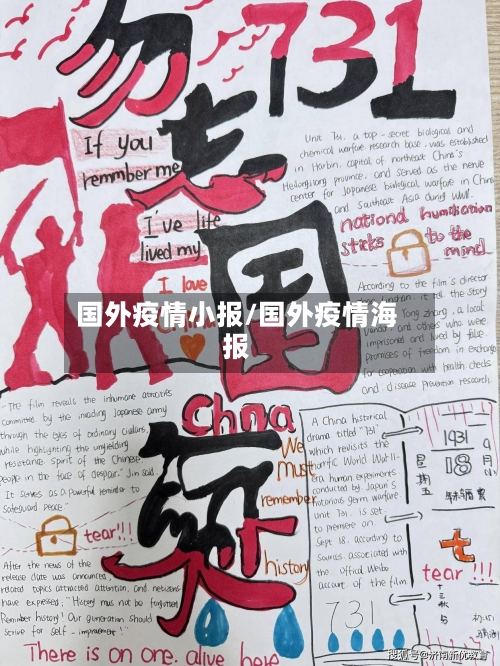 勿忘 731
国
耻
If you
remmber me
I've life
lived my
I love
China
Unit 731, a top-secret biological and
chemical warfare research base, was established
in Harbin, capital of northeast China's
Heilongjiang province, and served as the nerve
center for Japanese biological warfare in China
and Southeast Asia during WWII.
national humiliation
sticks to the
mind
According to the film's director
it tell the story
Yong zhang, a local
vendor and others who were
imprisoned and lured by false
promises of freedom in exchange
for cooperation with health checks
and disease prevention research.
国外疫情小报/国外疫情海
报
-The film reveals the inhumane atrocities
committed by the invading Japanese army
through the eyes of ordinary civilians,
while highlighting the unyielding
resistance spirit of the Chinese
people in the face of despair." Jin said.
It serves as a powerful reminder to
safeguard peace-
tear!!!
After the news of the
release date was announced,
related topics attracted attention, and netizens
have expressed, "History must not be forgotten!
Remember history! Our generation should
strive for self-improvement!"
China
We
Must
remember
history
A China historical
drama titled "731"
which revisits the
horrific World War II-
era human experiments
conducted by Japan's
notorious germ warfare
unit 731, is set
to premiere on
Sept 18, according to
sources associated with
the official Weibo
account of the film
731
1931
9月小
18
星期五
tear !!!
There is on one. alive here
搜狐号@济南新优教育